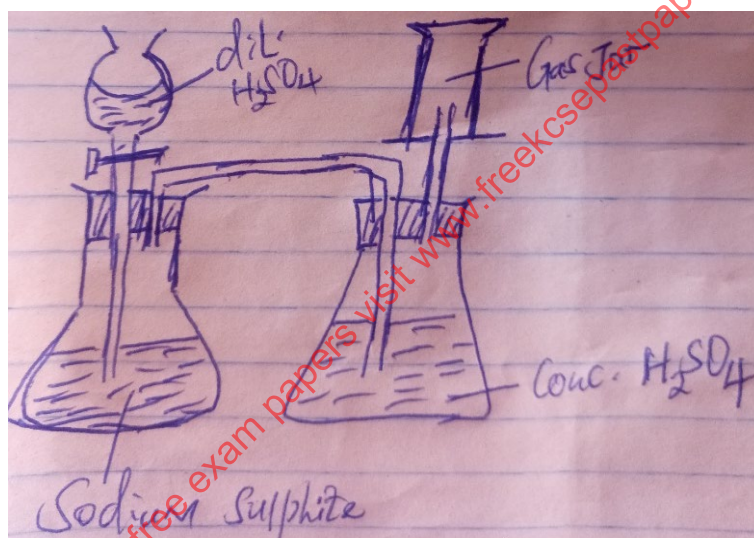 dil.
H2SO4
Gas Jar
Conc. H2SO4
Sodium Sulphite
free exam papers visit www.freekcsepastpap